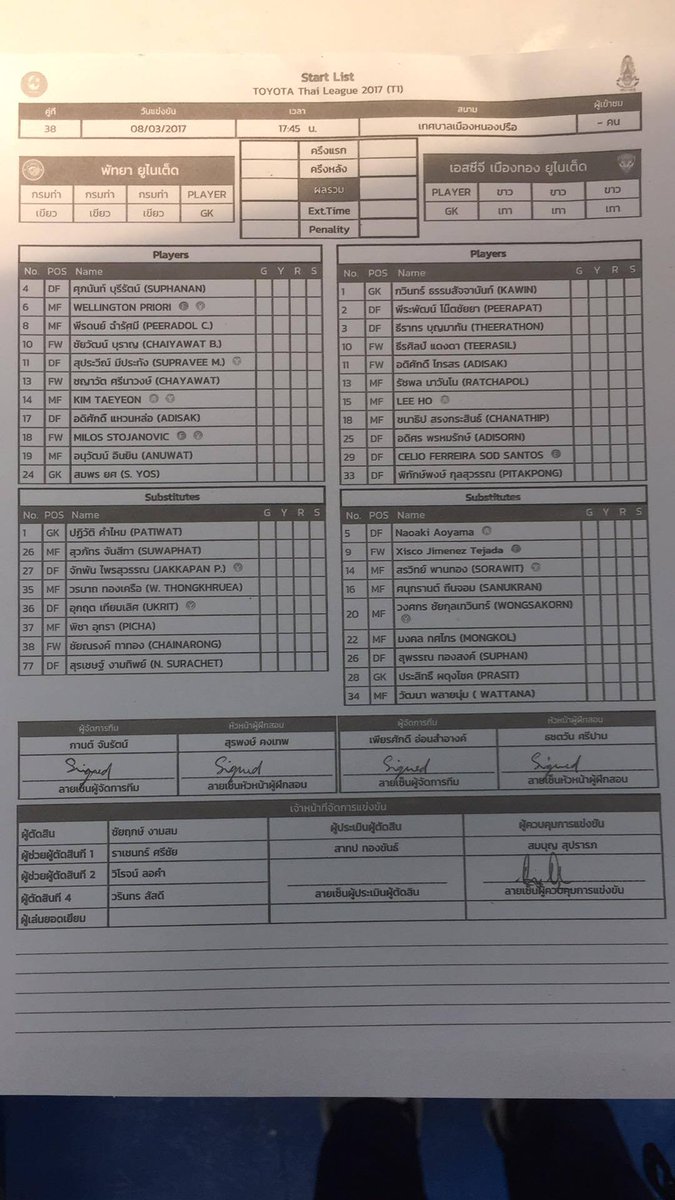 Start List
TOYOTA Thai League 2017 (T1)
คู่ที่ วันแข่งขัน เวลา สนาม ผู้เข้าชม
38 08/03/2017 17:45 น. เทศบาลเมืองหนองปรือ - คน
พัทยา ยูไนเต็ด
กรมท่า กรมท่า กรมท่า PLAYER
เขียว เขียว เขียว GK
ครึ่งแรก
ครึ่งหลัง
ผลรวม
Ext.Time
Penality
เอสซีจี เมืองทอง ยูไนเต็ด
PLAYER ขาว ขาว ขาว
GK เทา เทา เทา
Players
No. POS Name G Y R S
4 DF ศุภนันท์ บุรีรัตน์ (SUPHANAN)
6 MF WELLINGTON PRIORI
8 MF พีรดนย์ ฉ่ำรัศมี (PEERADOL C.)
10 FW ชัยวัฒน์ บุราญ (CHAIYAWAT B.)
11 DF สุประวีณ์ มีประทัง (SUPRAVEE M.)
13 FW ชญาวัต ศรีนาวงษ์ (CHAYAWAT)
14 MF KIM TAEYEON
17 DF อดิศักดิ์ แหวนหล่อ (ADISAK)
18 FW MILOS STOJANOVIC
19 MF อนุวัฒน์ อินยิน (ANUWAT)
24 GK สมพร ยศ (S. YOS)
Substitutes
No. POS Name G Y R S
1 GK ปฏิวัติ คำไหม (PATIWAT)
26 MF สุวภัทร จันสีทา (SUWAPHAT)
27 DF จักพัน ไพรสุวรรณ (JAKKAPAN P.)
35 MF วรนาถ ทองเครือ (W. THONGKHRUEA)
36 DF อุกฤต เทียมเลิศ (UKRIT)
37 MF พิชา อุทรา (PICHA)
38 FW ชัยณรงค์ ทาทอง (CHAINARONG)
77 DF สุรเชษฐ์ งามทิพย์ (N. SURACHET)
Players
No. POS Name G Y R S
1 GK กวินทร์ ธรรมสัจจานันท์ (KAWIN)
2 DF พีระพัฒน์ โน๊ตชัยยา (PEERAPAT)
3 DF ธีราทร บุญมาทัน (THEERATHON)
10 FW ธีรศิลป์ แดงดา (TEERASIL)
11 FW อดิศักดิ์ ไกรสร (ADISAK)
13 MF รัชพล นาวันโน (RATCHAPOL)
15 MF LEE HO
18 MF ชนาธิป สรงกระสินธ์ (CHANATHIP)
25 DF อดิศร พรหมรักษ์ (ADISORN)
29 DF CELIO FERREIRA SOD SANTOS
33 DF พิทักษ์พงษ์ กุลสุวรรณ (PITAKPONG)
Substitutes
No. POS Name G Y R S
5 DF Naoaki Aoyama
9 FW Xisco Jimenez Tejada
14 MF สรวิทย์ พานทอง (SORAWIT)
16 MF ศนุกรานต์ ถิ่นจอม (SANUKRAN)
20 MF วงศกร ชัยกุลเทวินทร์ (WONGSAKORN)
22 MF มงคล ทศไกร (MONGKOL)
26 DF สุพรรณ ทองสงค์ (SUPHAN)
28 GK ประสิทธิ์ ผดุงโชค (PRASIT)
34 MF วัฒนา พลายนุ่ม ( WATTANA)
ผู้จัดการทีม หัวหน้าผู้ฝึกสอน ผู้จัดการทีม หัวหน้าผู้ฝึกสอน
กานต์ จันรัตน์ สุรพงษ์ คงเทพ เพียรศักดิ์ อ่อนสำอางค์ ธชตวัน ศรีปาน
Signed Signed Signed Signed
ลายเซ็นผู้จัดการทีม ลายเซ็นหัวหน้าผู้ฝึกสอน ลายเซ็นผู้จัดการทีม ลายเซ็นหัวหน้าผู้ฝึกสอน
เจ้าหน้าที่จัดการแข่งขัน
ผู้ตัดสิน ชัยฤกษ์ งามสม ผู้ประเมินผู้ตัดสิน ผู้ควบคุมการแข่งขัน
ผู้ช่วยผู้ตัดสินที่ 1 ราเชนทร์ ศรีชัย สาทป ทองขันธ์ สมบุญ สุปรารภ
ผู้ช่วยผู้ตัดสินที่ 2 วิโรจน์ ลอคำ
ผู้ตัดสินที่ 4 วรินทร สัสดี ลายเซ็นผู้ประเมินผู้ตัดสิน ลายเซ็นผู้ควบคุมการแข่งขัน
ผู้เล่นยอดเยี่ยม